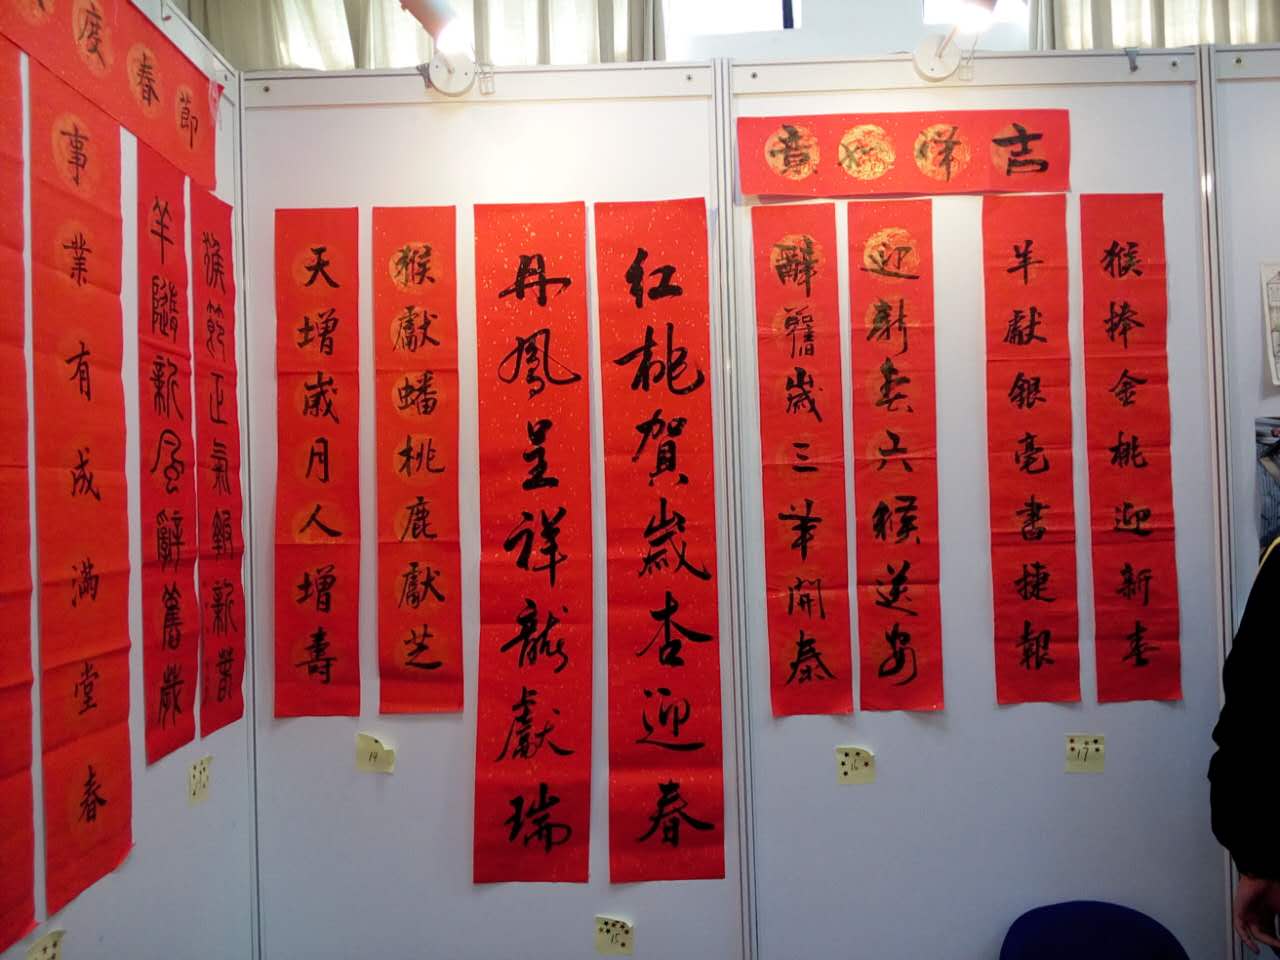 吉祥如意
猴捧金桃迎新春
羊獻銀毫書捷報
迎新春六猴送安
辭舊歲三羊開泰
17
16
红桃賀歲杏迎春
丹鳳呈祥龍獻瑞
15
猴獻蟠桃鹿獻芝
天增歲月人增壽
14
度春節
猴節正氣報新
羊隨新風辭舊歲
事業有成滿堂春